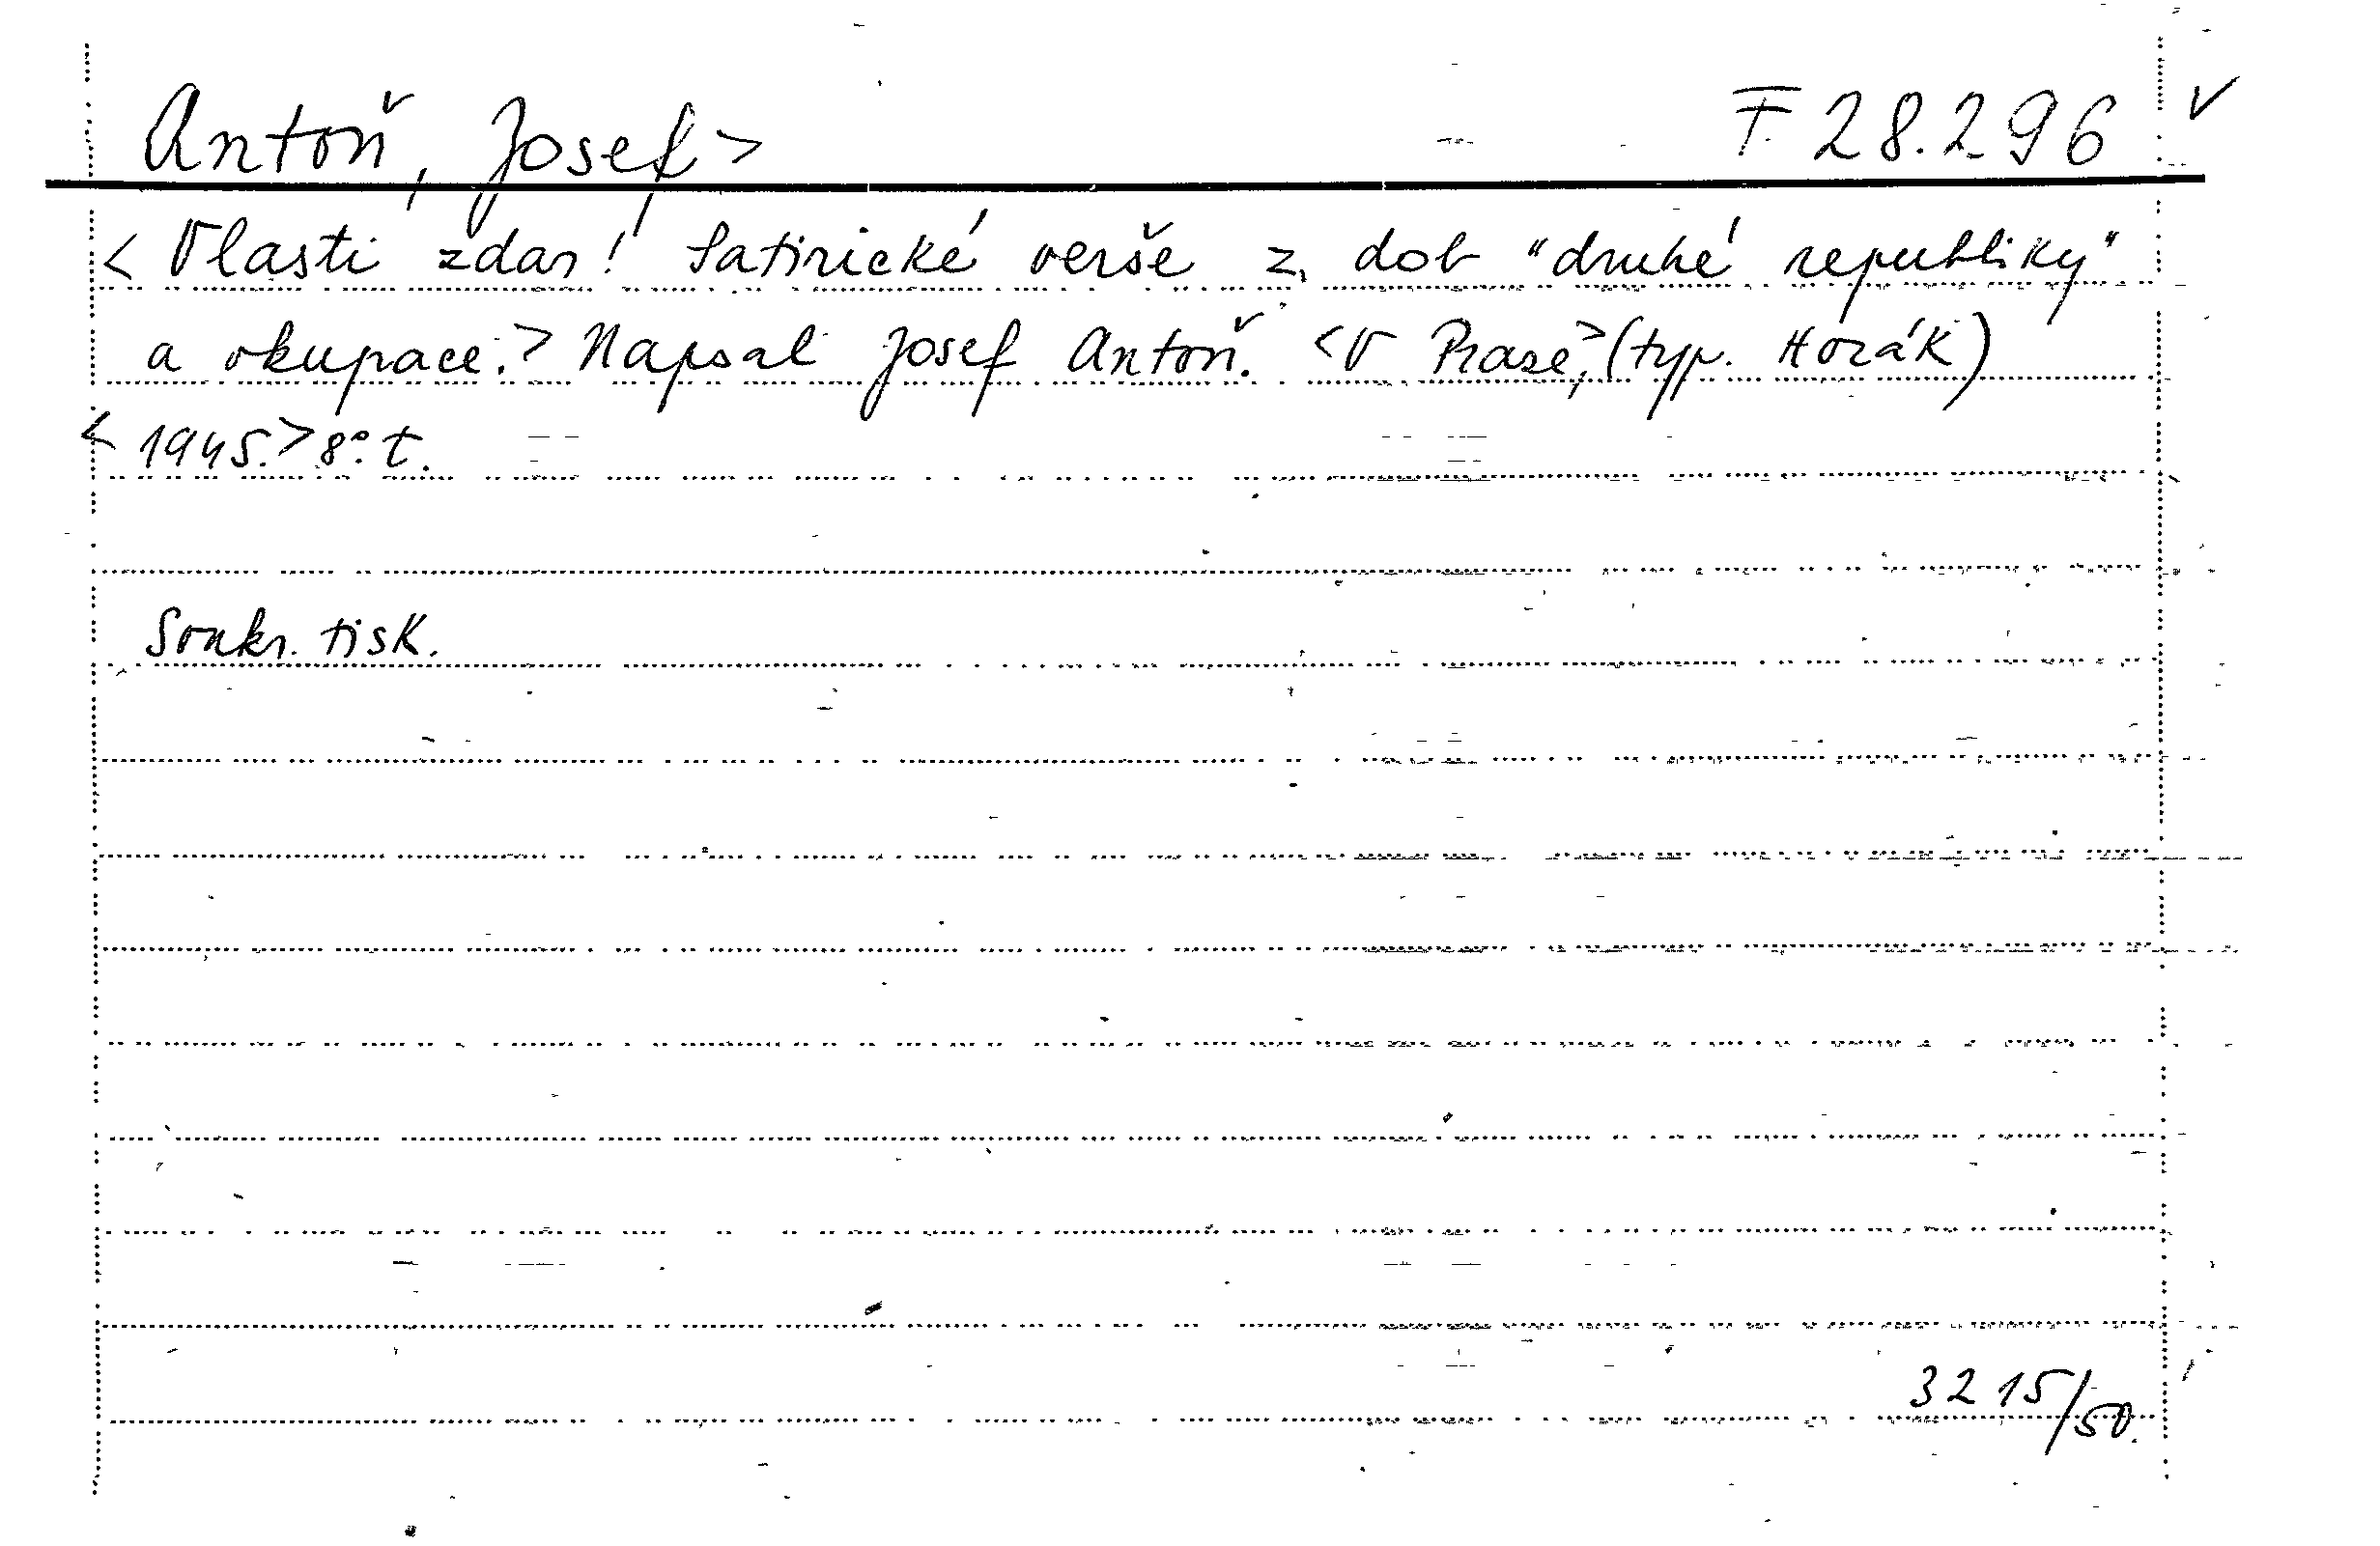 Antoň, Josef> F 28.296 v
<Vlasti zdar! Satirické verše z dob "druhé republiky"
a okupace.> Napsal Josef Antoň. <V Praze,> (typ. Horák)
<1945.> 8°. t.
Soukr. tisk.
3215/50.